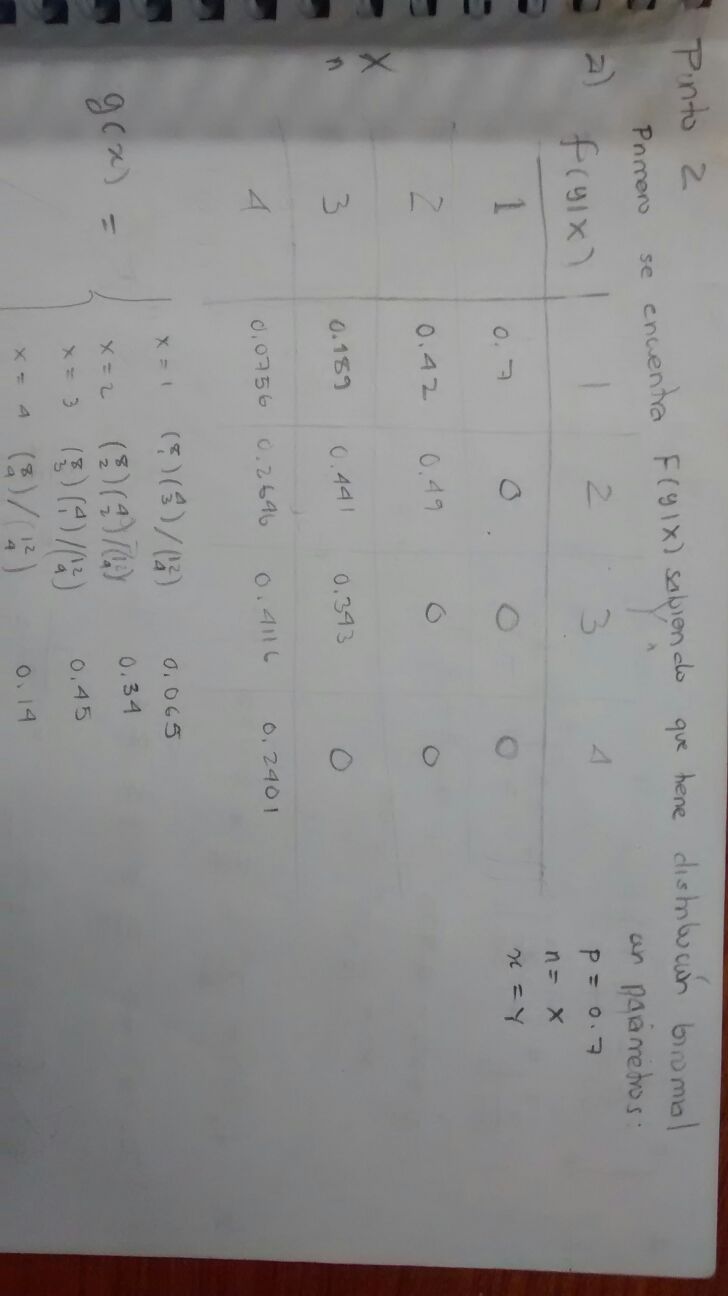 Punto 2
Primero se encuentra F(y|x) sabiendo que tiene distribución binomial
con parámetros:
a) f(y|x) 1 2 3 4
p = 0.7
n = x
x = Y
1 0.7 0 0 0
2 0.42 0.49 0 0
X
n
3 0.189 0.441 0.343 0
4 0.0756 0.2646 0.4116 0.2401
g(x) =
x = 1 (8 1)(4 3)/(12 4) 0.065
x = 2 (8 2)(4 2)/(12 4) 0.34
x = 3 (8 3)(4 1)/(12 4) 0.45
x = 4 (8 4)/(12 4) 0.14